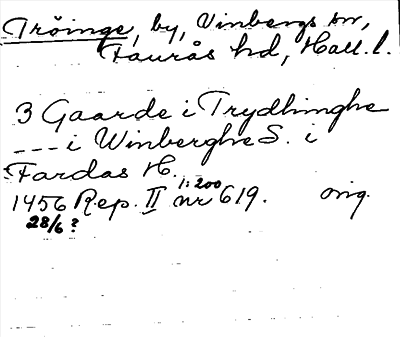 Tröinge, by, Vinbergs sn,
Faurås hd, Hall. l.
3 Gaarde i Trydhinghe
--- i Winberghe S. i
Fardas H.
1:200
1456 Rep. II nr 619. orig.
28/6?